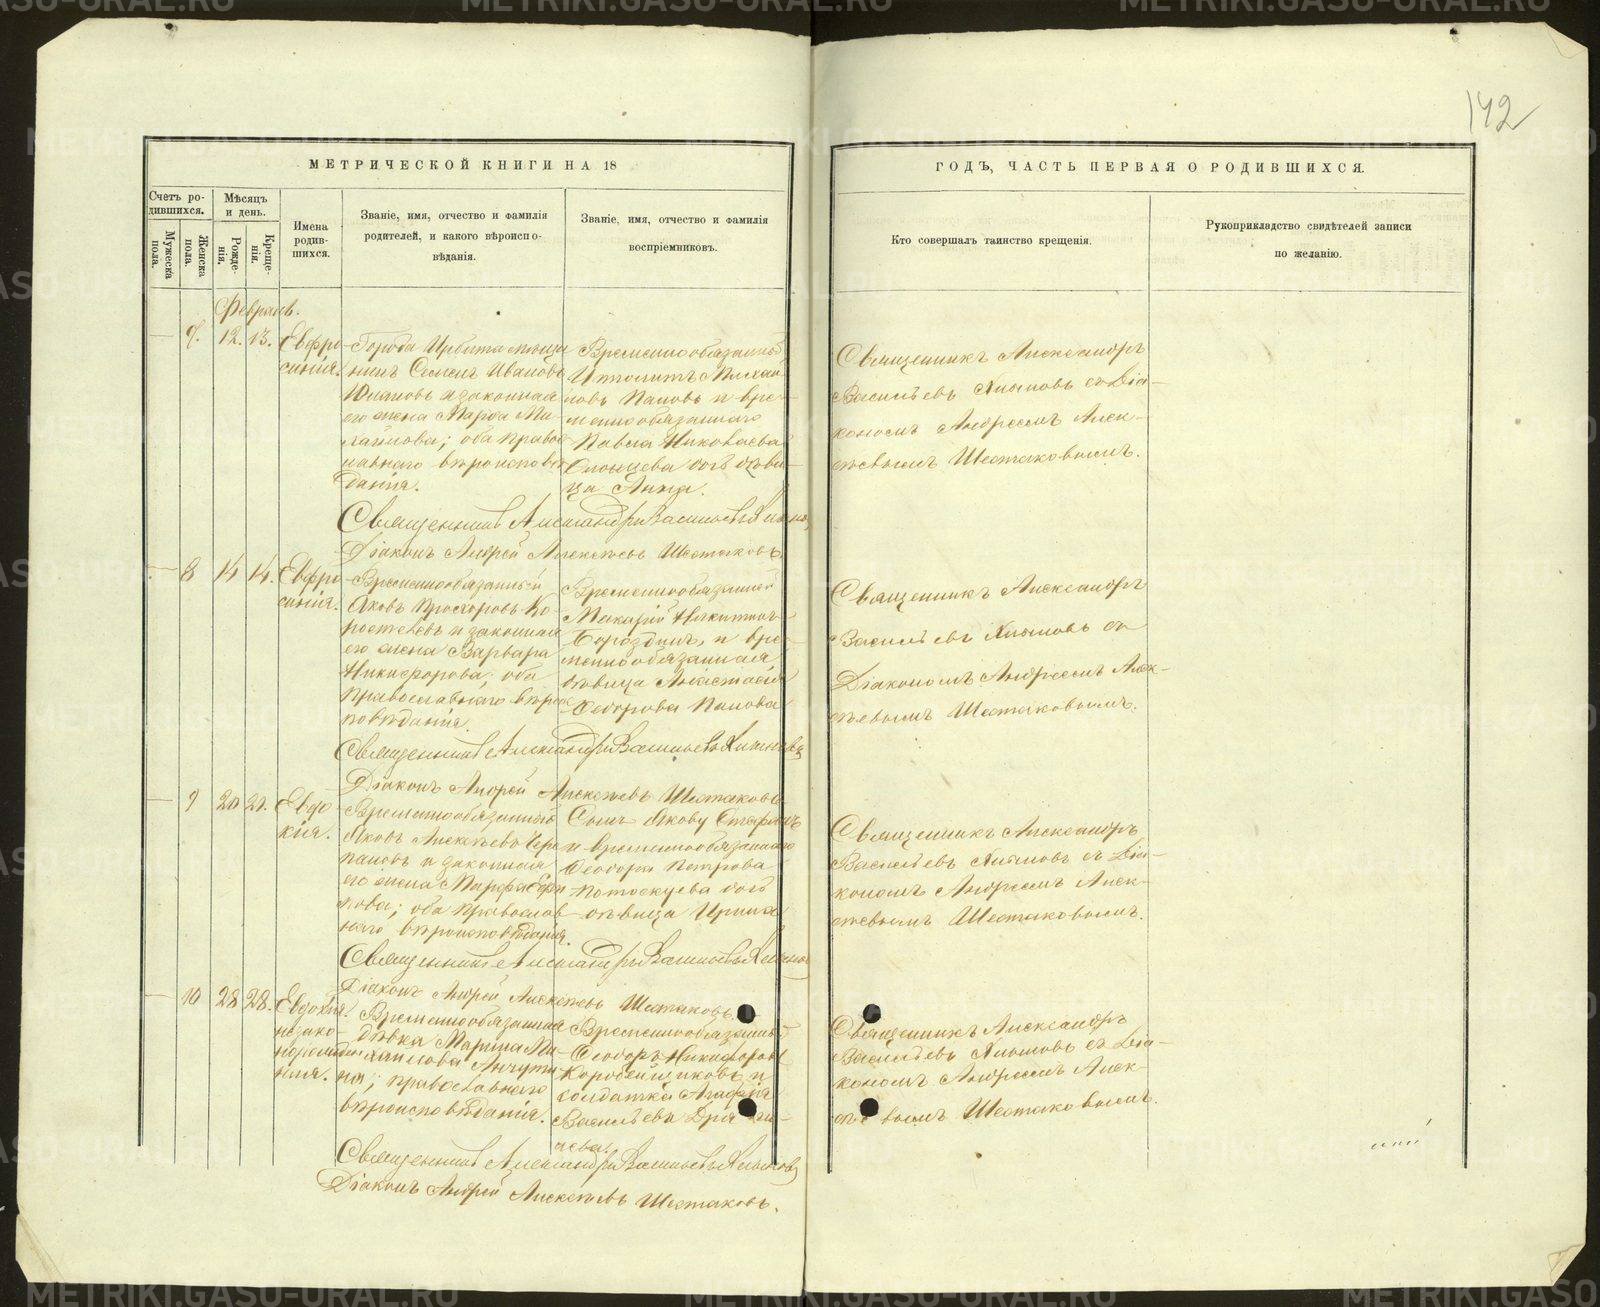 142
МЕТРИЧЕСКОЙ КНИГИ НА 18
ГОДЪ, ЧАСТЬ ПЕРВАЯ О РОДИВШИХСЯ.
Счетъ ро-
дившихся.
Мужеска
пола.
Женска
пола.
Мѣсяцъ
и день.
Рожде-
нія.
Креще-
нія.
Имена
родив-
шихся.
Званіе, имя, отчество и фамилія
родителей, и какого вѣроиспо-
вѣданія.
Званіе, имя, отчество и фамилія
воспріемниковъ.
Кто совершалъ таинство крещенія.
Рукоприкладство свидѣтелей записи
по желанію.
Февраль.
7. 12. 13.
Евфро-
синія.
Города Ирбита мѣща
нинъ Семенъ Ивановъ
и законная
его жена Марѳа Ми-
хайлова; оба право-
славнаго вѣроисповѣ
данія.
Временнообязанный
Ипполитъ Михаи
ловъ Пановъ и вре-
меннообязаннаго
Павла Николаева
дочь дѣви-
ца Анна.
Священникъ Александръ
Васильевъ съ Діа-
кономъ Андреемъ Алек-
сѣевымъ Шестаковымъ.
Священникъ Александръ Васильевъ
Діаконъ Андрей Алексѣевъ Шестаковъ.
8 14 14.
Евфро
синія.
Временнообязанный
Яковъ Прохоровъ Ко-
ростелевъ и законная
его жена Варвара
Никифорова; оба
православнаго вѣроис
повѣданія.
Временнообязанный
Макарій Никитинъ
Бороздинъ, и вре-
меннообязанная
дѣвица Анастасія
Ѳеодорова Панова
Священникъ Александръ
Васильевъ съ
Діакономъ Андреемъ Алек-
сѣевымъ Шестаковымъ.
Священникъ Александръ Васильевъ
Діаконъ Андрей Алексѣевъ Шестаковъ
9 20 21.
Евдо-
кія.
Временнообязанный
Яковъ Алексѣевъ Чере
пановъ и законная
его жена Марѳа
оба православ-
наго вѣроисповѣданія.
Сынъ Якову
и временнообязаннаго
Ѳеодора Петрова
Потоскуева дочь
дѣвица Ирина
Священникъ Александръ
Васильевъ съ Діа-
кономъ Андреемъ Алек-
сѣевымъ Шестаковымъ.
Священникъ Александръ Васильевъ
Діаконъ Андрей Алексѣевъ Шестаковъ.
10 28 28.
Евдокія
незако-
норожден
ная.
Временнообязанная
дѣвка Марина Ми-
хаилова
православнаго
вѣроисповѣданія.
Временнообязанный
Ѳеодоръ Никифоровъ
Коробейниковъ и
солдатка Агафія
Васильева
Священникъ Александръ
Васильевъ съ Діа-
кономъ Андреемъ Алек-
сѣевымъ Шестаковымъ.
Священникъ Александръ Васильевъ
Діаконъ Андрей Алексѣевъ Шестаковъ.
METRIKI.GASU-URAL.RU